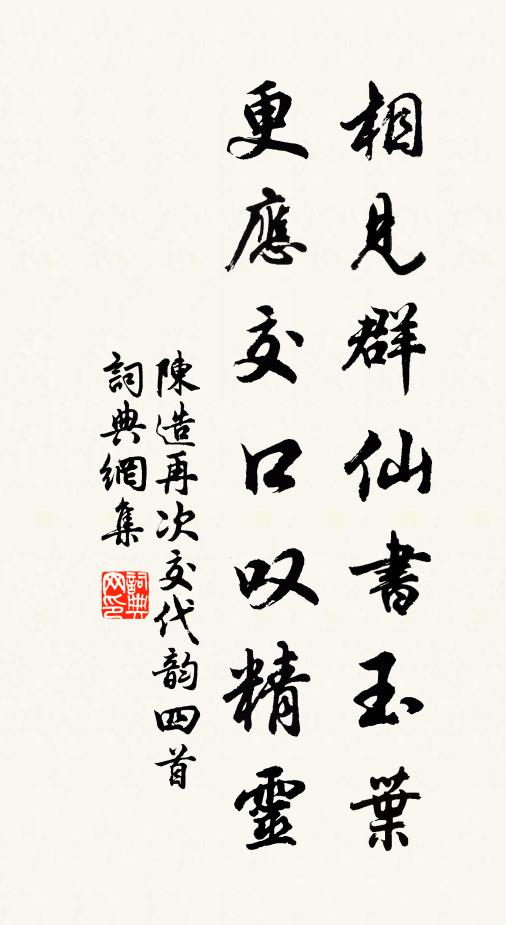 相見群仙書玉葉
更應交口叹精靈
陳造再次交代韵四首
詞典網集
詞典网印